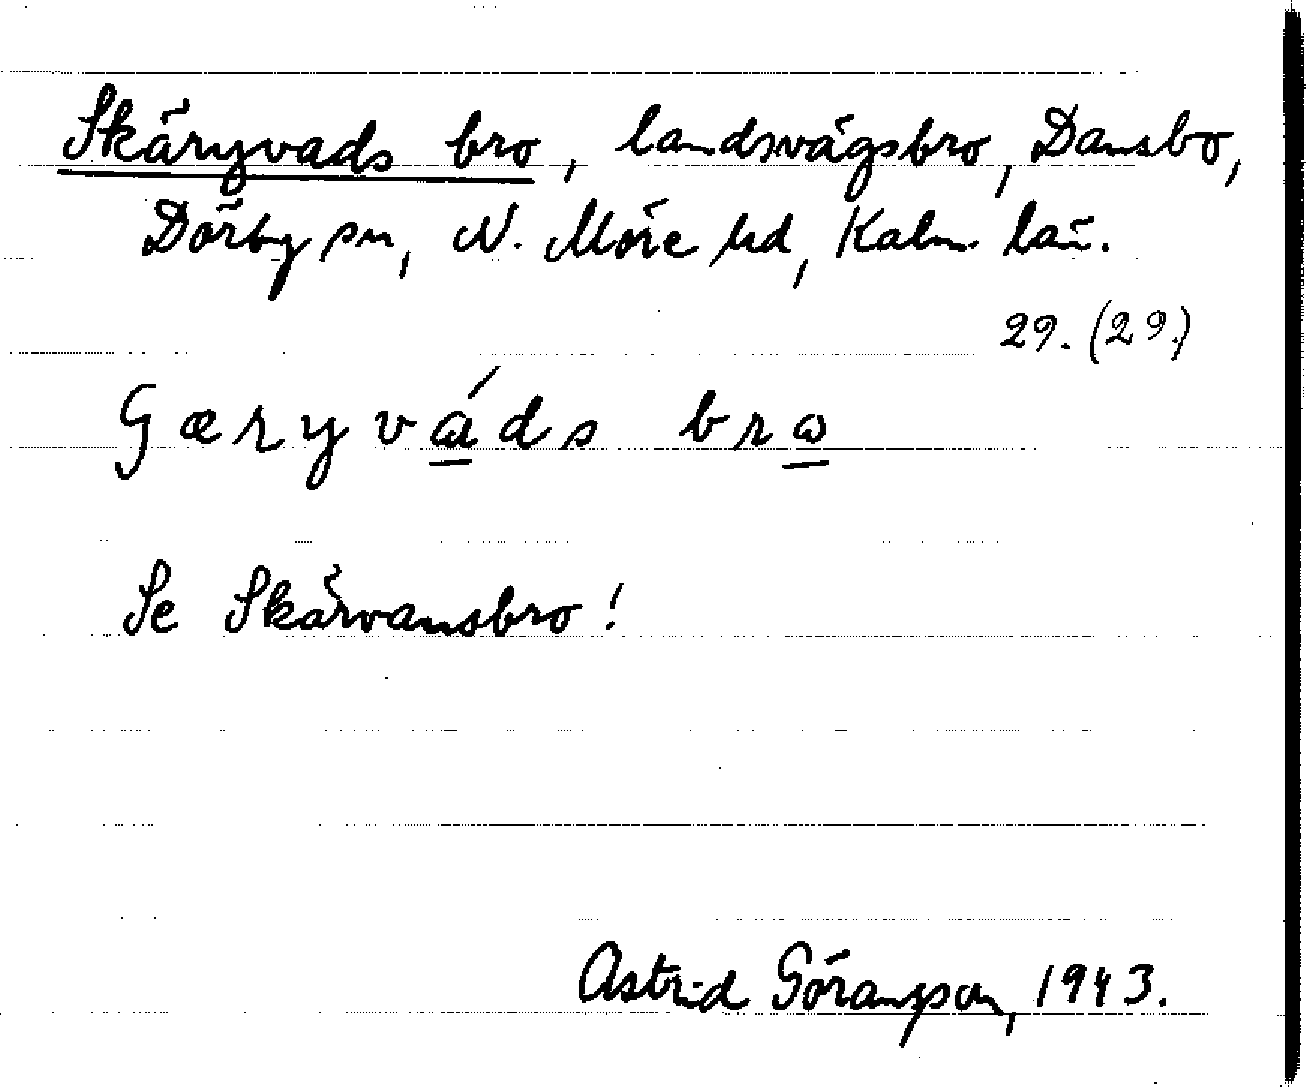 Skäryvads bro, landsvägsbro, Dansbo,
Dörby sn, N. Möre hd, Kalm. län.
29. (29.)
Gæryvá̱ds bro̱
Se Skärvansbro!
Astrid Göranzson, 1943.